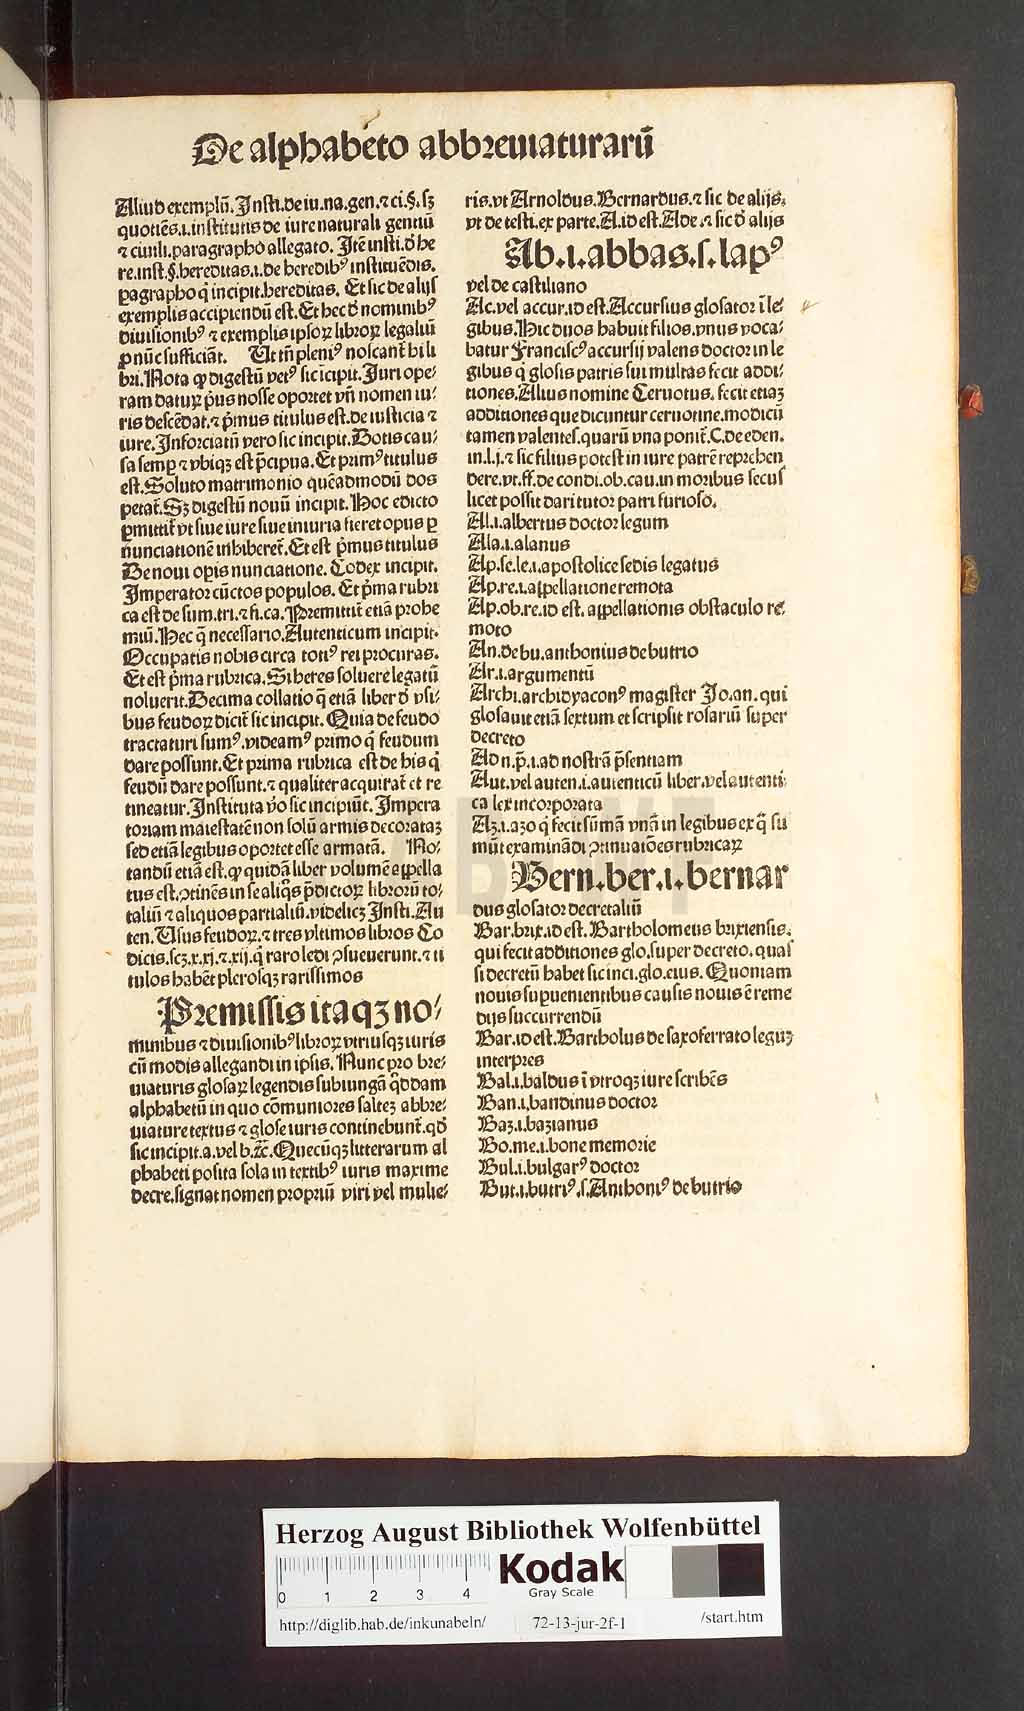 De alphabeto abbreuiaturarū
Aliud exemplū. Insti. de iu. na. gen. ⁊ ci. §. sꝫ
quotiēs. i. institutis de iure naturali gentiū
⁊ ciuili. paragrapho allegato. Itē insti. đ he
re. inst. §. hereditas. i. de heredibꝰ instituēdis.
paragrapho q̄ incipit. hereditas. Et sic de alijs
exemplis accipiendū est. Et hec đ nominibꝰ
diuisionibꝰ ⁊ exemplis ipsoꝝ libroꝝ legaliū
ꝓ nūc sufficiāt. Ut tn̄ pleniꝰ noscant̄ hi li
bri. Nota ꝙ digestū vetꝰ sic īcipit. Iuri ope⸗
ram daturꝝ p̄us nosse oportet vn̄ nomen iu⸗
ris descēdat. ⁊ p̄mus titulus est. de iusticia ⁊
iure. Inforciatū vero sic incipit. Dotis cau⸗
sa semꝑ ⁊ vbiqꝫ est p̄cipua. Et primꝰ titulus
est. Soluto matrimonio quēadmodū dos
petat̄. Sꝫ digestū nouū incipit. Hoc edicto
ꝓmittit̄ vt siue iure siue iniuria fieret opus ꝑ
nunciationē inhiberet̄. Et est p̄mus titulus
De noui opis nunciatione. Codex incipit.
Imperator cūctos populos. Et p̄ma rubri
ca est de sum. tri. ⁊ fi. ca. Premittit̄ etiā prohe
miū. Hec q̄ necessario. Autenticum incipit.
Occupatis nobis circa totiꝰ rei procuras.
Et est p̄ma rubrica. Si heres soluere legatū
noluerit. Decima collatio q̄ etiā liber đ vsi⸗
bus feudoꝝ dicit̄ sic incipit. Quia de feudo
tractaturi sumꝰ. videamꝰ primo q̄ feudum
dare possunt. Et prima rubrica est de his q̄
feudū dare possunt. ⁊ qualiter acquirat̄ et re
tineatur. Instituta v̄o sic incipiūt. Impera
toriam maiestatē non solū armis decorataꝫ
sed etiā legibus oportet esse armatā. No⸗
tandū etiā est. ꝙ quidā liber volumē appella
tus est. ꝯtinēs in se aliq̄s p̄dictoꝝ librorū to⸗
taliū ⁊ aliquos partialiū. videlicꝫ Insti. Au
ten. Usus feudoꝝ. ⁊ tres vltimos libros Co
dicis. scꝫ. x. xj. ⁊ xij. q̄ raro ledi ꝯsueuerunt. ⁊ ti
tulos habēt plerosqꝫ rarissimos
Premissis itaqꝫ no⸗
minibus ⁊ diuisionibꝰ libroꝝ vtriusqꝫ iuris
cū modis allegandi in ipsis. Nunc pro bre⸗
uiaturis glosaꝝ legendis subiungā q̄ddam
alphabetū in quo cōmuniores saltez abbre⸗
uiature textus ⁊ glose iuris continebunt̄. qđ
sic incipit. a. vel b. ⁊c̄. Quecūqꝫ litterarum al
phabeti posita sola in textibꝰ iuris maxime
decre. signat nomen propriū viri vel mulie⸗
ris. vt Arnoldus. Bernardus. ⁊ sic de alijs.
vt de testi. ex parte. A. id est. Ade. ⁊ sic đ alijs
Ab. i. abbas. s. lapꝰ
vel de castiliano
Ac. vel accur. id est. Accursius glosator ī le⸗
gibus. Hic duos habuit filios. vnus voca⸗
batur Franciscꝰ accursij valens doctor in le
gibus q̄ glosis patris sui multas fecit addi⸗
tiones. Alius nomine Ceruotus. fecit etiaꝫ
additiones que dicuntur ceruotine. modicū
tamen valentes. quarū vna ponit̄. C. de eden.
in. l. j. ⁊ sic filius potest in iure patrē reprehen
dere. vt. ff. de condi. ob. cau. in moribus secus
licet possit dari tutor patri furioso.
Al. i. albertus doctor legum
Ala. i. alanus
Ap. se. le. i. apostolice sedis legatus
Ap. re. i. appellatione remota
Ap. ob. re. id est. appellationis obstaculo re⸗
moto
An. de bu. anthonius de butrio
Ar. i. argumentū
Archi. archidyaconꝰ magister Jo. an. qui
glosauit etiā sextum et scripsit rosariū super
decreto
Ad n. p̄. i. ad nostrā p̄sentiam
Aut. vel auten. i. autenticū liber. vel autenti⸗
ca lex incorporata
Aꝫ. i. azo q̄ fecit sūmā vnā in legibus ex q̄ su
mūt examinādi ꝯtinuatiōes rubricaꝝ
Bern. ber. i. bernar
dus glosator decretaliū
Bar. brix. id est. Bartholomeus brixiensis.
qui fecit additiones glo. super decreto. quas
si decretū habet sic inci. glo. eius. Quoniam
nouis supuenientibus causis nouis ē reme
dijs succurrendū
Bar. id est. Bartholus de saxoferrato leguꝫ
interpres
Bal. i. baldus ī vtroqꝫ iure scribēs
Ban. i. bandinus doctor
Baꝫ. i. bazianus
Bo. me. i. bone memorie
Bul. i. bulgarꝰ doctor
But. i. butriꝰ. s. Anthoniꝰ de butrio
HAB WF
Herzog August Bibliothek Wolfenbüttel
0 1 2 3 4
Kodak
Gray Scale
http://diglib.hab.de/inkunabeln/ 72-13-jur-2f-1 /start.htm